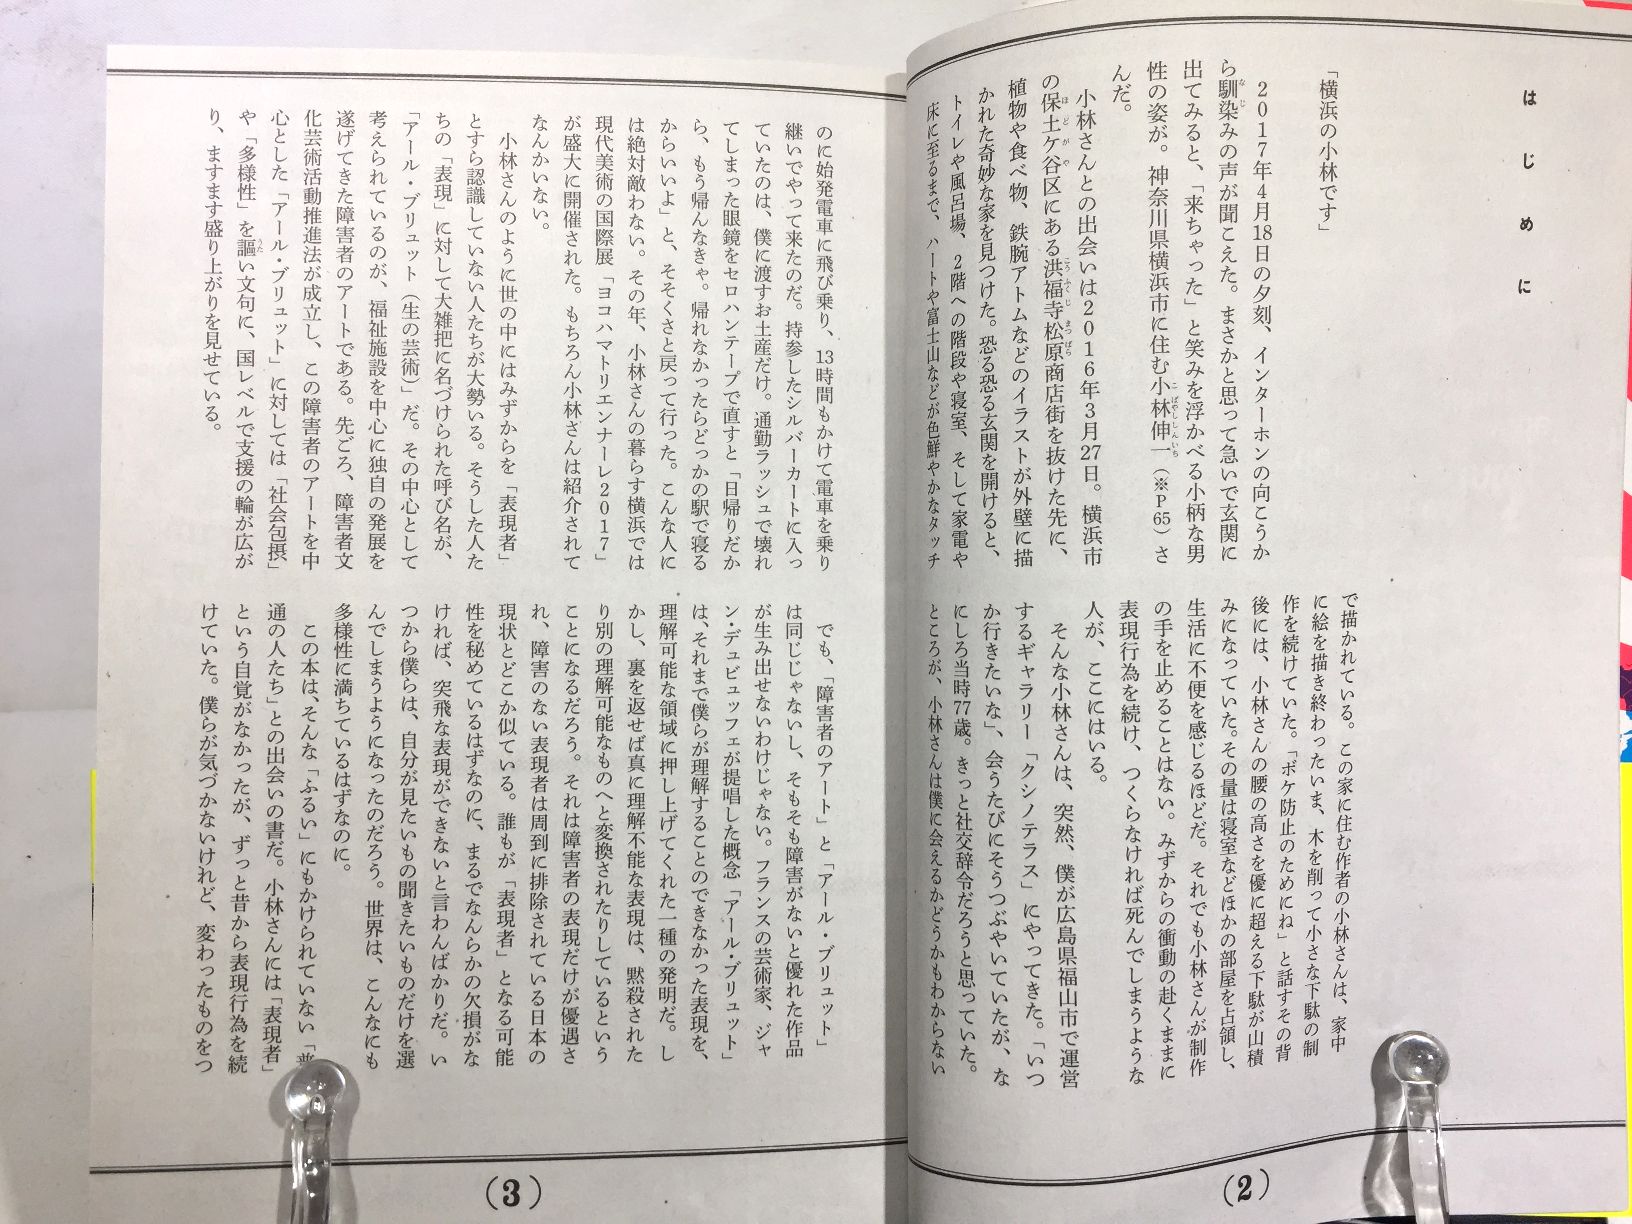 はじめに
「横浜の小林です」
2017年4月18日の夕刻、インターホンの向こうか
ら馴染みの声が聞こえた。まさかと思って急いで玄関に
出てみると、「来ちゃった」と笑みを浮かべる小柄な男
性の姿が。神奈川県横浜市に住む小林伸一（※P65）さ
んだ。
小林さんとの出会いは2016年3月27日。横浜市
の保土ケ谷区にある洪福寺松原商店街を抜けた先に、
植物や食べ物、鉄腕アトムなどのイラストが外壁に描
かれた奇妙な家を見つけた。恐る恐る玄関を開けると、
トイレや風呂場、2階への階段や寝室、そして家電や
床に至るまで、ハートや富士山などが色鮮やかなタッチ
で描かれている。この家に住む作者の小林さんは、家中
に絵を描き終わったいま、木を削って小さな下駄の制
作を続けていた。「ボケ防止のためにね」と話すその背
後には、小林さんの腰の高さを優に超える下駄が山積
みになっていた。その量は寝室などほかの部屋を占領し、
生活に不便を感じるほどだ。それでも小林さんが制作
の手を止めることはない。みずからの衝動の赴くままに
表現行為を続け、つくらなければ死んでしまうような
人が、ここにはいる。
そんな小林さんは、突然、僕が広島県福山市で運営
するギャラリー「クシノテラス」にやってきた。「いつ
か行きたいな」、会うたびにそうつぶやいていたが、な
にしろ当時77歳。きっと社交辞令だろうと思っていた。
ところが、小林さんは僕に会えるかどうかもわからない
(2)
のに始発電車に飛び乗り、13時間もかけて電車を乗り
継いでやって来たのだ。持参したシルバーカートに入っ
ていたのは、僕に渡すお土産だけ。通勤ラッシュで壊れ
てしまった眼鏡をセロハンテープで直すと「日帰りだか
ら、もう帰んなきゃ。帰れなかったらどっかの駅で寝る
からいいよ」と、そそくさと戻って行った。こんな人に
は絶対敵わない。その年、小林さんの暮らす横浜では
現代美術の国際展「ヨコハマトリエンナーレ2017」
が盛大に開催された。もちろん小林さんは紹介されて
なんかいない。
小林さんのように世の中にはみずからを「表現者」
とすら認識していない人たちが大勢いる。そうした人た
ちの「表現」に対して大雑把に名づけられた呼び名が、
「アール・ブリュット（生の芸術）」だ。その中心として
考えられているのが、福祉施設を中心に独自の発展を
遂げてきた障害者のアートである。先ごろ、障害者文
化芸術活動推進法が成立し、この障害者のアートを中
心とした「アール・ブリュット」に対しては「社会包摂」
や「多様性」を謳い文句に、国レベルで支援の輪が広が
り、ますます盛り上がりを見せている。
でも、「障害者のアート」と「アール・ブリュット」
は同じじゃないし、そもそも障害がないと優れた作品
が生み出せないわけじゃない。フランスの芸術家、ジャ
ン・デュビュッフェが提唱した概念「アール・ブリュット」
は、それまで僕らが理解することのできなかった表現を、
理解可能な領域に押し上げてくれた一種の発明だ。し
かし、裏を返せば真に理解不能な表現は、黙殺された
り別の理解可能なものへと変換されたりしているという
ことになるだろう。それは障害者の表現だけが優遇さ
れ、障害のない表現者は周到に排除されている日本の
現状とどこか似ている。誰もが「表現者」となる可能
性を秘めているはずなのに、まるでなんらかの欠損がな
ければ、突飛な表現ができないと言わんばかりだ。い
つから僕らは、自分が見たいもの聞きたいものだけを選
んでしまうようになったのだろう。世界は、こんなにも
多様性に満ちているはずなのに。
この本は、そんな「ふるい」にもかけられていない「普
通の人たち」との出会いの書だ。小林さんには「表現者」
という自覚がなかったが、ずっと昔から表現行為を続
けていた。僕らが気づかないけれど、変わったものをつ
(3)